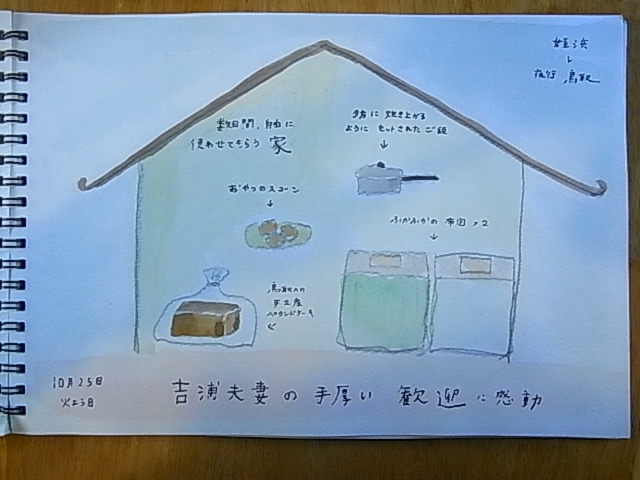 姪浜
↓
夜行 鳥取
数日間、自由に
使わせてもらう 家
夕方に 炊き上がる
ように セットされた ご飯
↓
おやつのスコーン
↓
ふかふかの 布団 ×2
↓
鳥取への
手土産
パウンドケーキ
10月25日
火よう日
吉浦夫妻の手厚い 歓迎に感動